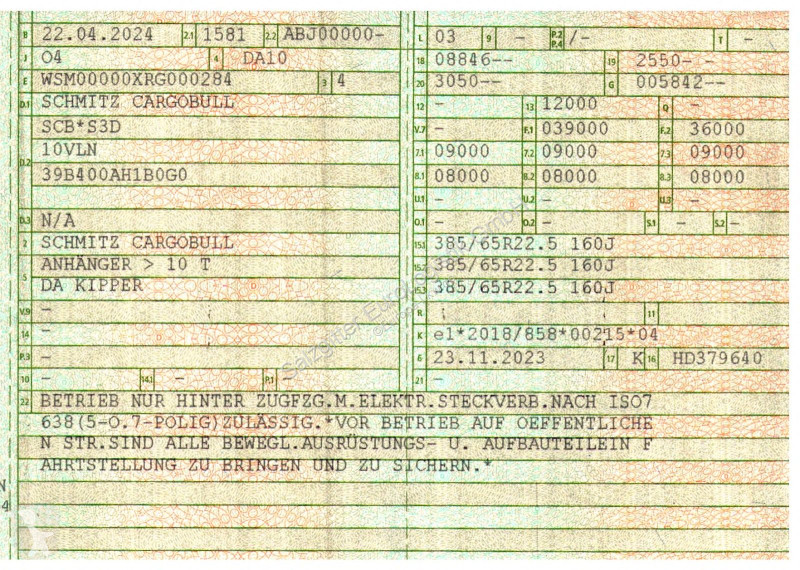 B 22.04.2024 2.1 1581 2.2 ABJ00000-
J O4 4 DA10
E WSM00000XRG000284 3 4
D.1 SCHMITZ CARGOBULL
SCB*S3D
10VLN
D.2 39B400AH1B0G0
D.3 N/A
2 SCHMITZ CARGOBULL
ANHÄNGER > 10 T
5 DA KIPPER
V.9 -
14 -
P.3 -
10 - 14.1 - P.1 -
L 03 9 - P.2 P.4 /- T -
18 08846-- 19 2550- -
20 3050-- G 005842--
12 - 13 12000 Q -
V.7 - F.1 039000 F.2 36000
7.1 09000 7.2 09000 7.3 09000
8.1 08000 8.2 08000 8.3 08000
U.1 - U.2 - U.3 -
O.1 - O.2 - S.1 - S.2 -
15.1 385/65R22.5 160J
15.2 385/65R22.5 160J
15.3 385/65R22.5 160J
R - 11
K e1*2018/858*00215*04
6 23.11.2023 17 K 16 HD379640
21 -
22 BETRIEB NUR HINTER ZUGFZG.M.ELEKTR.STECKVERB.NACH ISO7
638(5-O.7-POLIG)ZULÄSSIG.*VOR BETRIEB AUF OEFFENTLICHE
N STR.SIND ALLE BEWEGL.AUSRÜSTUNGS- U. AUFBAUTEILEIN F
AHRTSTELLUNG ZU BRINGEN UND ZU SICHERN.*
N
4